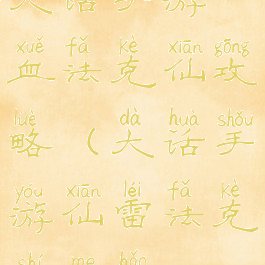 大话手游
xuě fǎ kè xiān gōng
血法克仙攻
lüè dà huà shǒu
略（大话手
yóu xiān léi fǎ kè
游仙雷法克
shí me hǎo